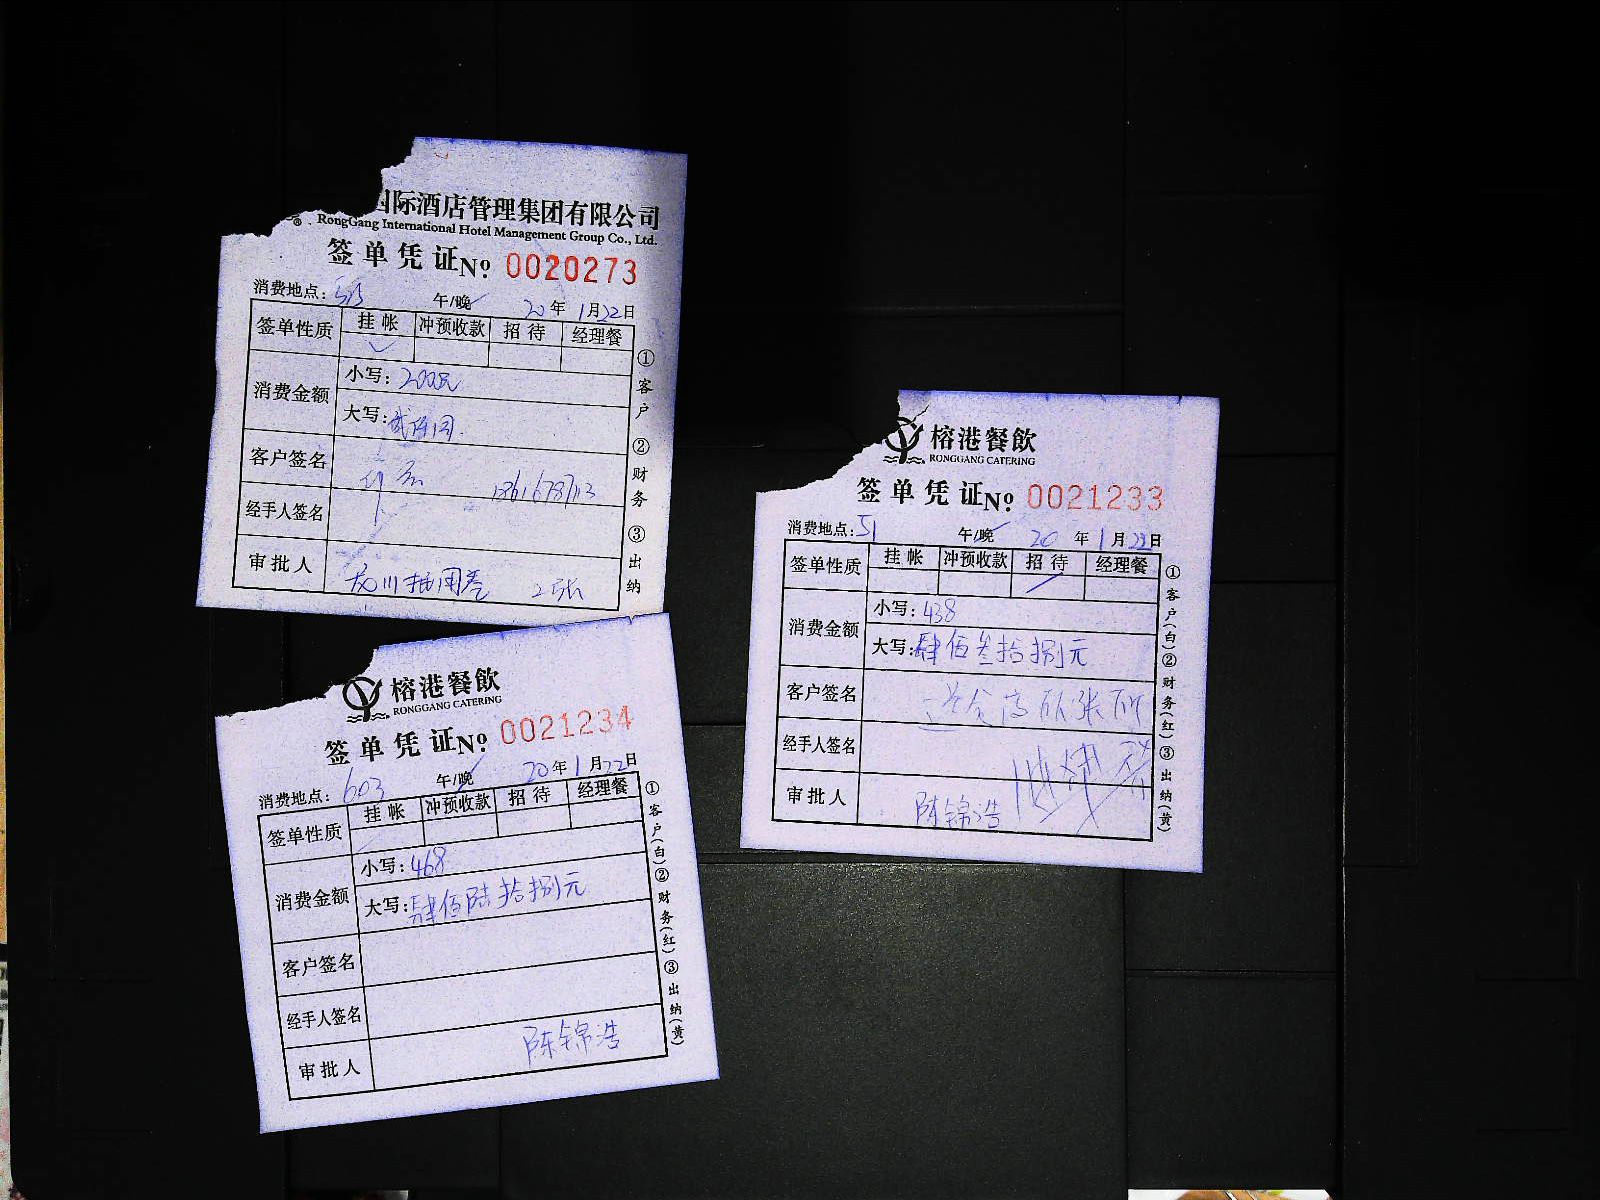 国际酒店管理集团有限公司
RongGang International Hotel Management Group Co., Ltd.
签单凭证No 0020273
消费地点: 午/晚 20年1月22日
签单性质 挂帐 冲预收款 招待 经理餐
消费金额 小写: 200元
大写: 贰佰圆
客户签名
经手人签名
审批人 2张
①客户 ②财务 ③出纳
榕港餐飲
RONGGANG CATERING
签单凭证No 0021233
消费地点: 51 午/晚 20年1月22日
签单性质 挂帐 冲预收款 招待 经理餐
消费金额 小写: 438
大写: 肆佰叁拾捌元
客户签名
经手人签名
审批人 陈锦浩
①客户(白)②财务(红)③出纳(黄)
榕港餐飲
RONGGANG CATERING
签单凭证No 0021234
消费地点: 603 午/晚 20年1月22日
签单性质 挂帐 冲预收款 招待 经理餐
消费金额 小写: 468
大写: 肆佰陆拾捌元
客户签名
经手人签名
审批人 陈锦浩
①客户(白)②财务(红)③出纳(黄)